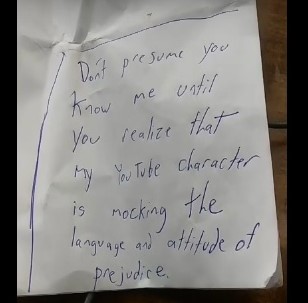 Don't presume you
Know me until
You realize that
My YouTube character
is mocking the
language and attitude of
prejudice.